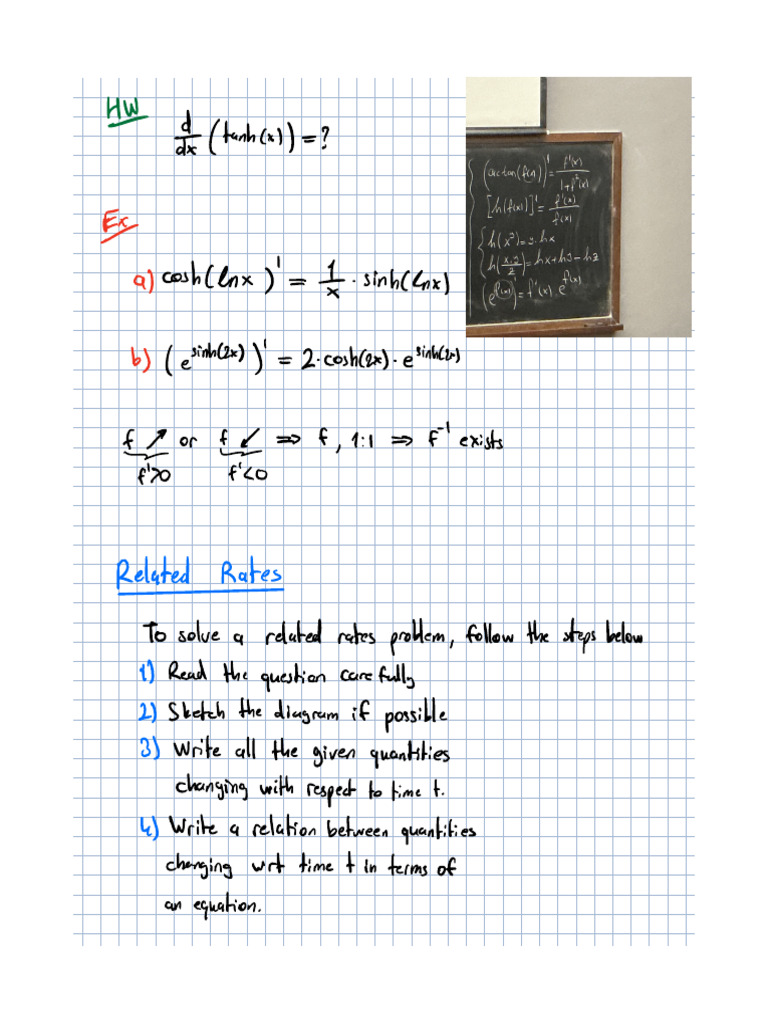 HW
d/dx (tanh(x)) = ?
(arctan(f(x)))' = f'(x) / 1+f²(x)
[ln(f(x))]' = f'(x) / f(x)
ln(x³) = 3·lnx
ln(x·3/2) = lnx + ln3 - ln2
(e^f(x))' = f'(x)·e^f(x)
Ex
a) cosh(lnx)' = 1/x · sinh(lnx)
b) (e^sinh(2x))' = 2·cosh(2x)·e^sinh(2x)
f ↗ or f ↙ ⇒ f, 1:1 ⇒ f⁻¹ exists
f'>0 f'<0
Related Rates
To solve a related rates problem, follow the steps below
1) Read the question carefully
2) Sketch the diagram if possible
3) Write all the given quantities
changing with respect to time t.
4) Write a relation between quantities
changing wrt time t in terms of
an equation.